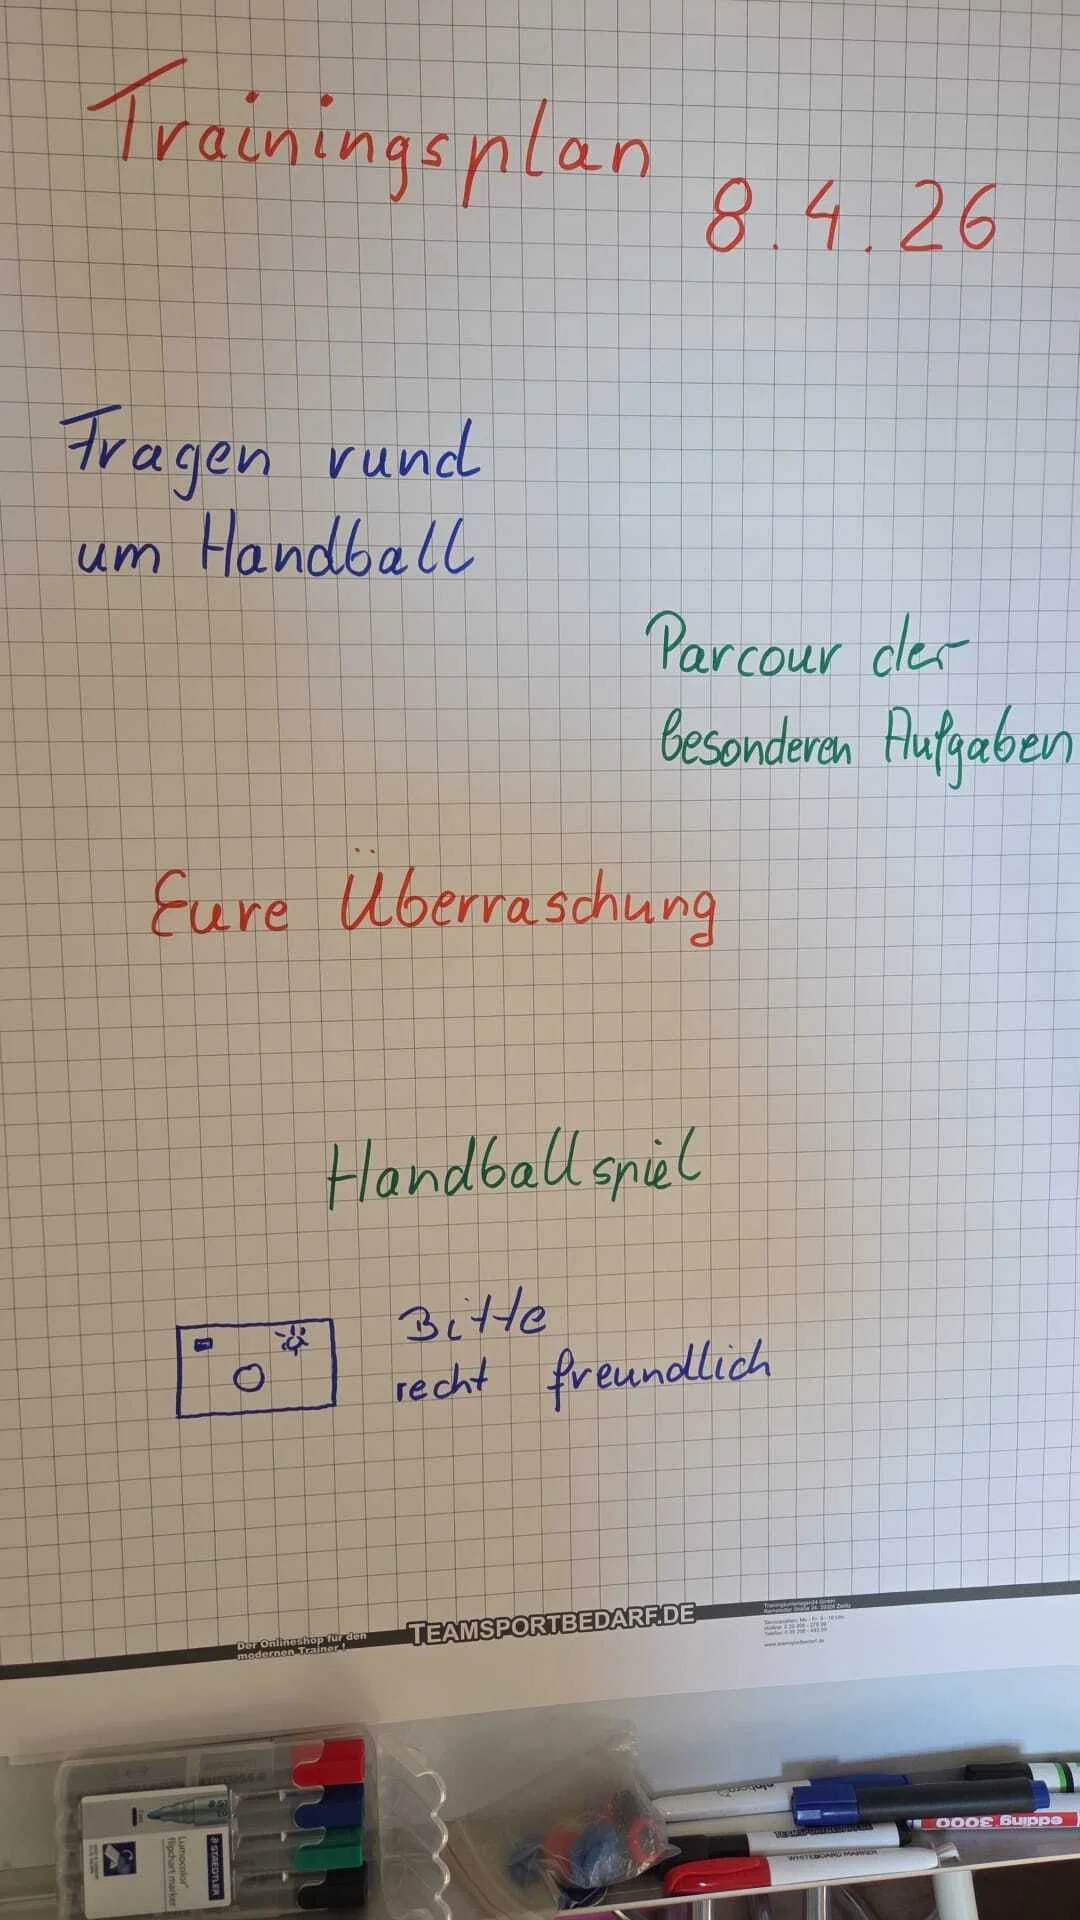 Trainingsplan
8.4.26
Fragen rund
um Handball
Parcour der
besonderen Aufgaben
Eure Überraschung
Handballspiel
Bitte
recht freundlich
Der Onlineshop für den
modernen Trainer!
TEAMSPORTBEDARF.DE
www.teamsportbedarf.de
STAEDTLER
Lumocolor
flipchart marker
edding 3000
WHITEBOARD MARKER